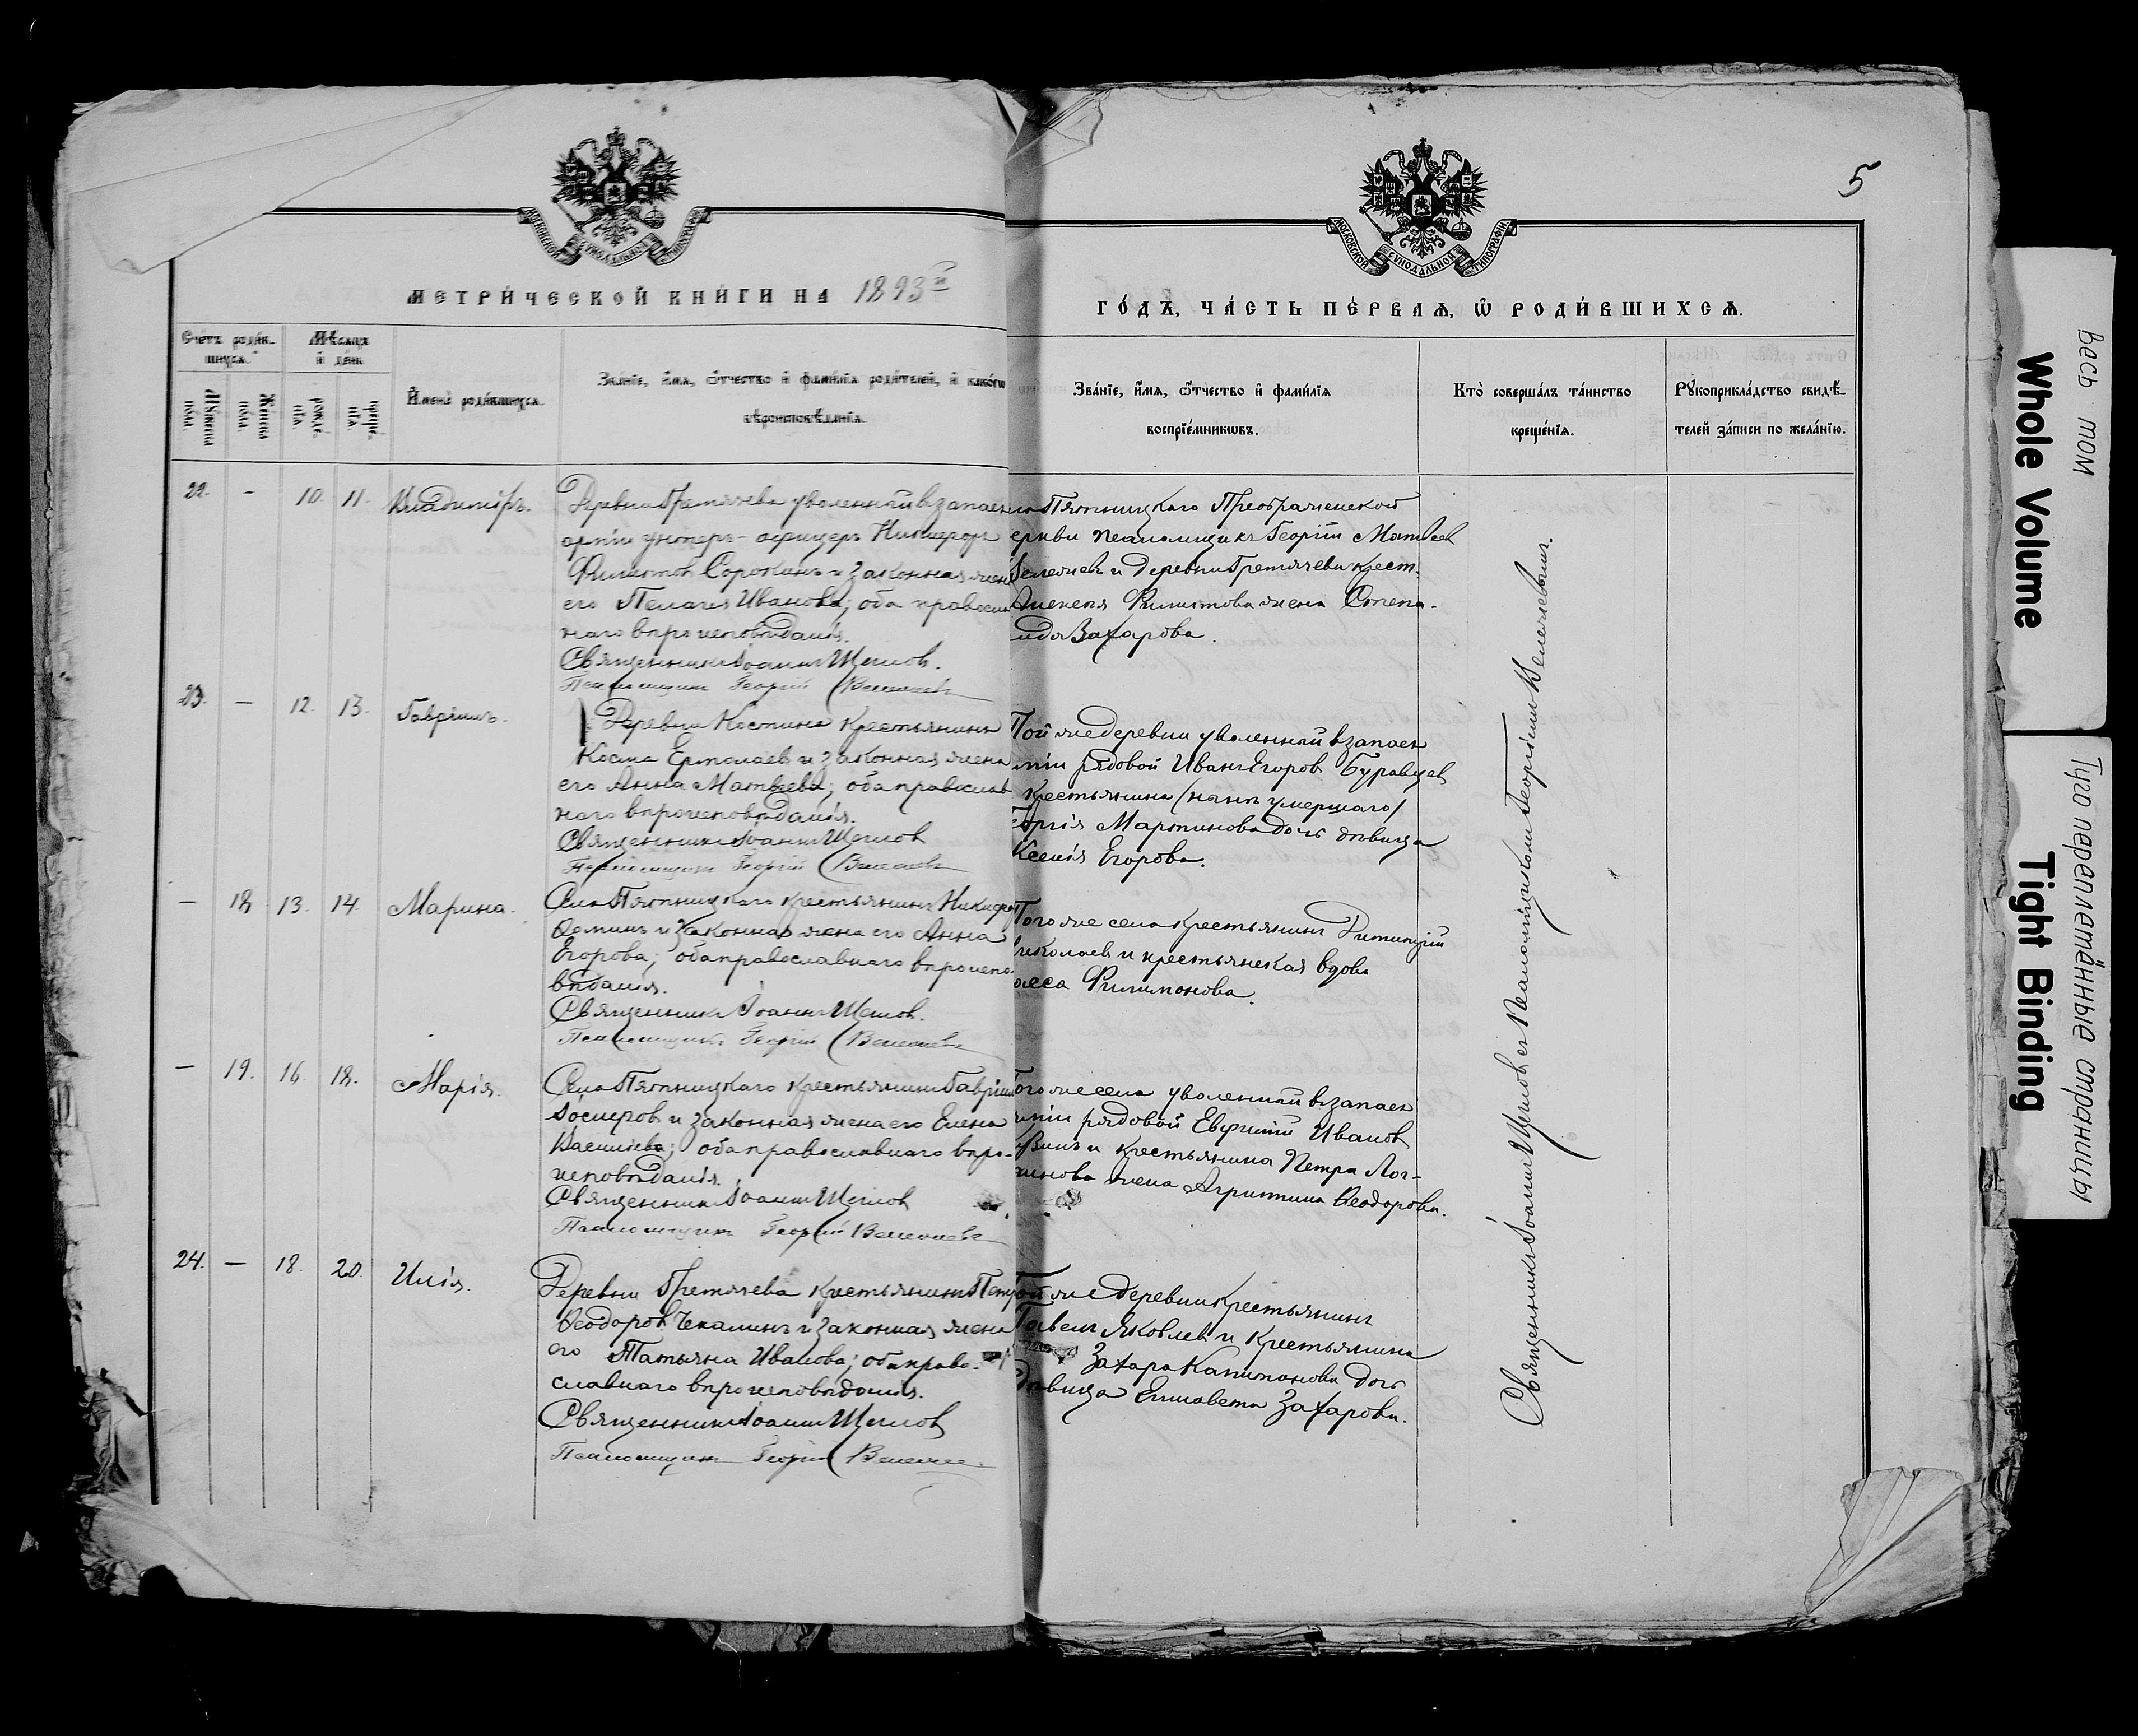 5
МОСКОВСКОЙ СУНОДАЛЬНОЙ ТИПОГРАФІИ
МОСКОВСКОЙ СУНОДАЛЬНОЙ ТИПОГРАФІИ
МЕТРИ́ЧЕСКОЙ КНИ́ГИ НА 1893й
ГО́ДЪ, ЧА́СТЬ ПЕ́РВАѦ, Ѽ РОДИ́ВШИХСѦ.
Счетъ роди́в-
шихсѧ.
Мѣсѧцъ
и де́нь.
Мꙋжеска
пола.
Женска
пола.
рожде́-
нїѧ.
креще́-
нїѧ.
И҆мена̀ роди́вшихсѧ.
Зва́нїе, и҆́мѧ, ѻ҆́тчество и҆ фамі́лїѧ роди́телей, и҆ како́гѡ
вѣроисповѣ́данїѧ.
Зва́нїе, и҆́мѧ, ѻ҆́тчество и҆ фамі́лїѧ
воспрїе́мникѡвъ.
Кто̀ соверша́лъ та́инство
креще́нїѧ.
Рꙋкоприкла́дство свидѣ́-
телей за́писи по жела́нїю.
22. - 10. 11. Владиміръ.
Деревни Гремячева уволенный въ запасъ
арміи унтеръ-офицеръ Никифоръ
Филатовъ Сорокинъ и законная жена
его Пелагея Иванова; оба православ
наго вѣроисповѣданія.
Священникъ Іоаннъ Щегловъ.
Псаломщикъ Георгій
Пятницкаго Преображенской
церкви псаломщикъ Георгій Матвеев
и Деревни Гремячева крест.
Алексѣя Филатова жена Степа-
нида Захарова.
23. - 12. 13. Гавріилъ.
Деревни Костина крестьянинъ
Косма Ермолаевъ и законная жена
его Анна Матвѣева; оба православ
наго вѣроисповѣданія.
Священникъ Іоаннъ Щегловъ
Псаломщикъ Георгій
Той же деревни уволенный въ запасъ
арміи рядовой Иванъ Егоровъ
крестьянина (нынѣ умершаго)
Георгія Мартинова дочь дѣвица
Ксенія Егорова.
- 18 13. 14. Марина.
Села Пятницкаго крестьянинъ Никифоръ
Ѳоминъ и законная жена его Анна
Егорова; оба православнаго вѣроиспо-
вѣданія.
Священникъ Іоаннъ Щегловъ.
Псаломщикъ Георгій
Того же села крестьянинъ Димитрій
Николаевъ и крестьянская вдова
Филимонова.
- 19. 16. 18. Марія.
Села Пятницкаго крестьянинъ Гавріилъ
Іосифовъ и законная жена его Елена
Васильева; оба православнаго вѣро-
исповѣданія.
Священникъ Іоаннъ Щегловъ
Псаломщикъ Георгій
Того же села уволенный въ запасъ
арміи рядовой Евфимій Ивановъ
и крестьянина Петра Лог-
гинова жена Агриппина Ѳеодорова.
24. - 18. 20. Илія.
Деревни Гремячева крестьянинъ Петръ
Ѳеодоровъ Чекалинъ и законная жена
его Татьяна Иванова; оба право-
славнаго вѣроисповѣданія.
Священникъ Іоаннъ Щегловъ
Псаломщикъ Георгій
Той же деревни крестьянинъ
Павелъ Яковлевъ и крестьянина
Захара Капитонова дочь
дѣвица Елисавета Захарова.
Священникъ Іоаннъ Щегловъ съ псаломщикомъ Георгіемъ
Весь том
Whole Volume
Туго переплетённые страницы
Tight Binding